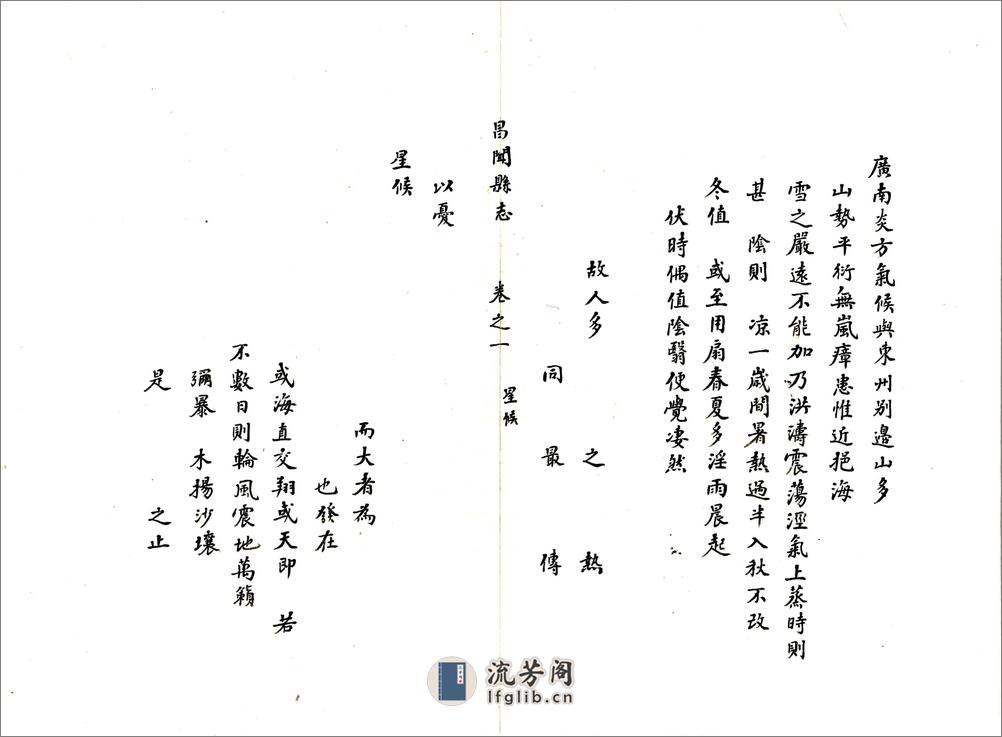 廣南炎方氣候與東州别邊山多
山勢平衍無嵐瘴患惟近挹海
雪之嚴遠不能加乃洪濤震蕩溼氣上蒸時則
甚 陰則 凉一歲間暑熱過半入秋不改
冬值 或至用扇春夏多淫雨晨起
伏時偶值陰翳便覺凄然
故人多 之 熱
同 最 傳
昌 縣志 卷之一 星候
以憂
星候
而大者為
也發在
或海直交翔或天即 若
不數日則輪風震地萬籟
彌暴 木揚沙壤
是 之止
流芳阁
lfglib.cn